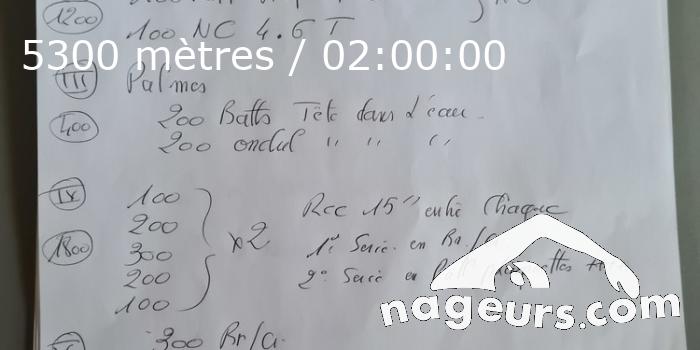 1200
100 NC 4.6 T
5300 mètres / 02:00:00
III Palmes
400
200 Batts Tête dans l'eau
200 ondul " " "
IX 100
200
1800 300 x2
200
100
Rec 15" entre Chaque
1° Serie en Br./
2° Serie en
nageurs.com
300 Br/a